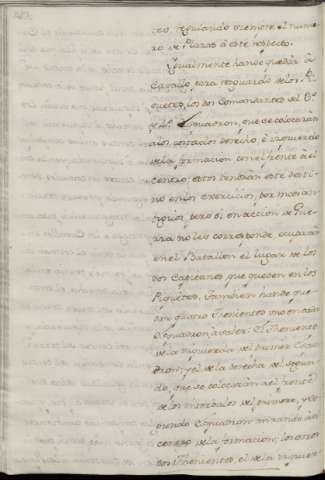 reo, regulando siempre el nume-
ro de Plazas à este respecto.
Igualmente hande quedar à
Cavallo, para resguardo de los Pi-
quetes, los dos Comandantes del
Esquadron, que se colocaràn
a los costados derecho, è izquierdo
de la formacion con el frente à el
centro; estos tendràn este desti-
no en los exercicios, por mas an-
tiguos, pero si en accion de Gue-
rra no les corresponde, ocuparàn
en el Batallon el lugar de los
dos Capitanes que queden en los
Piquetes. Tambien hande que-
dar quatro Thenientes
Esquadron, à saber: El Theniente
de la izquierda del primer
y el de la derecha del segun-
do, que se colocaràn al frente
de los intervalos del primero, y se-
gundo Esquadron mirando à el
centro de la formacion; los otros
dos Thenientes, el de la